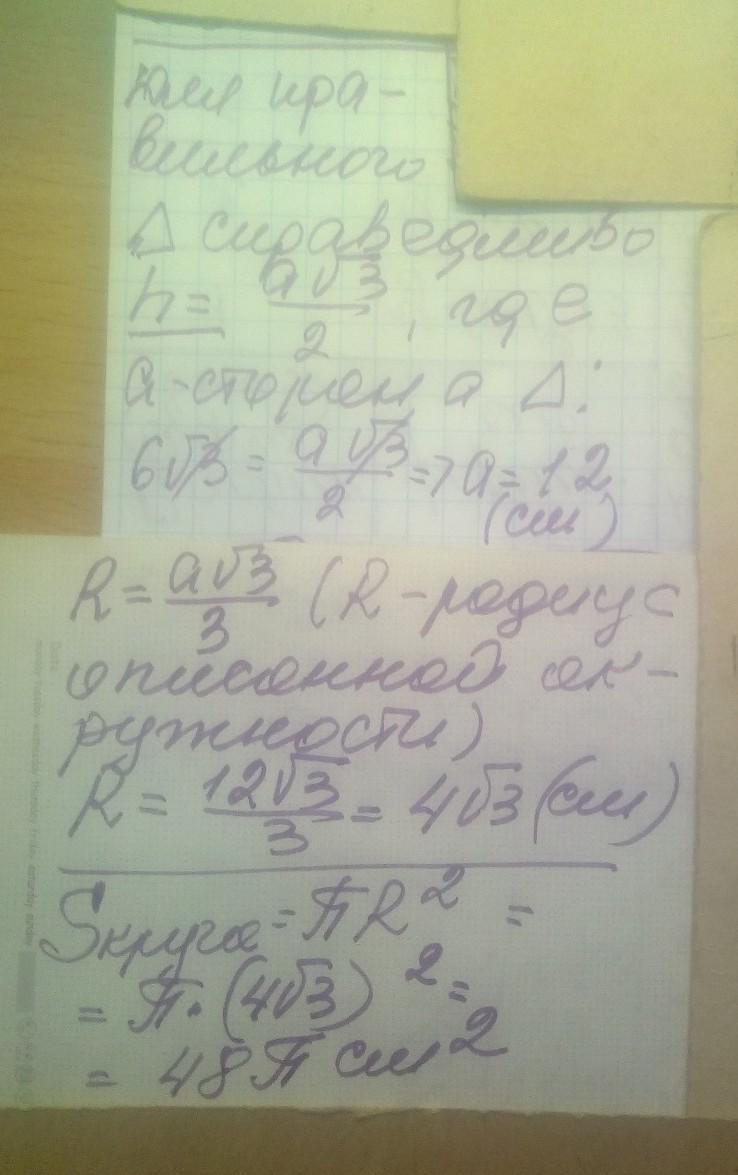 для пра-
вильного
Δ справедливо
h = a√3/2, где
a-сторона Δ:
6√3 = a√3/2 => a = 12
(см)
R = a√3/3 (R-радиус
описанной ок-
ружности)
R = 12√3/3 = 4√3 (см)
Sкруга = πR² =
= π·(4√3)² =
= 48π см²